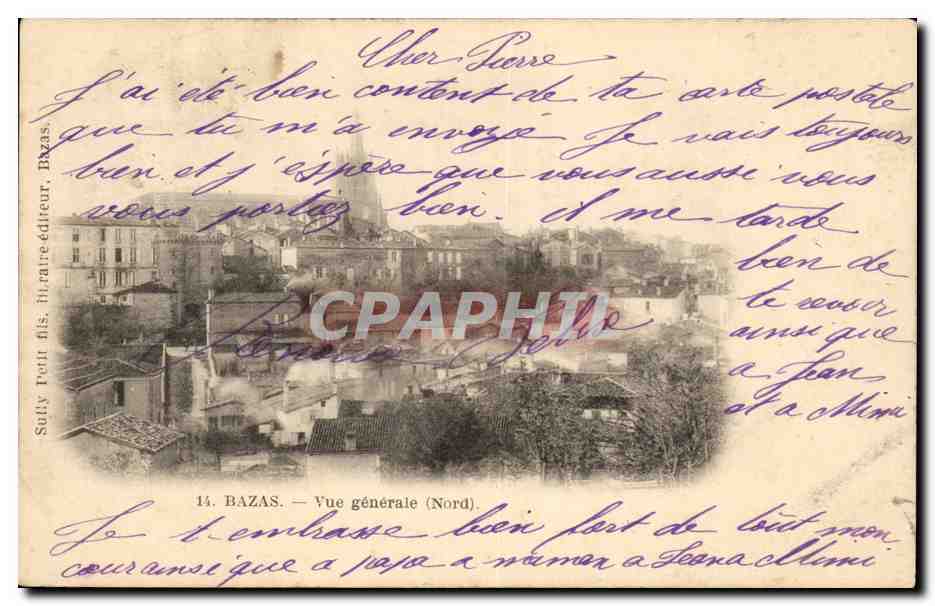 Cher Pierre
J'ai été bien content de ta carte postale
que tu m'a envoyé Je vais toujours
bien et j'espère que vous aussi vous
vous portez bien. il me tarde
bien de
te revoir
ainsi que
a Jean
et a Mimi
CPAPHIL
Sully Petit fils, libraire-éditeur, Bazas.
14. BAZAS. — Vue générale (Nord).
Je t-embrasse bien fort de tout mon
cour ainsi que a papa a maman a Leona Mimi